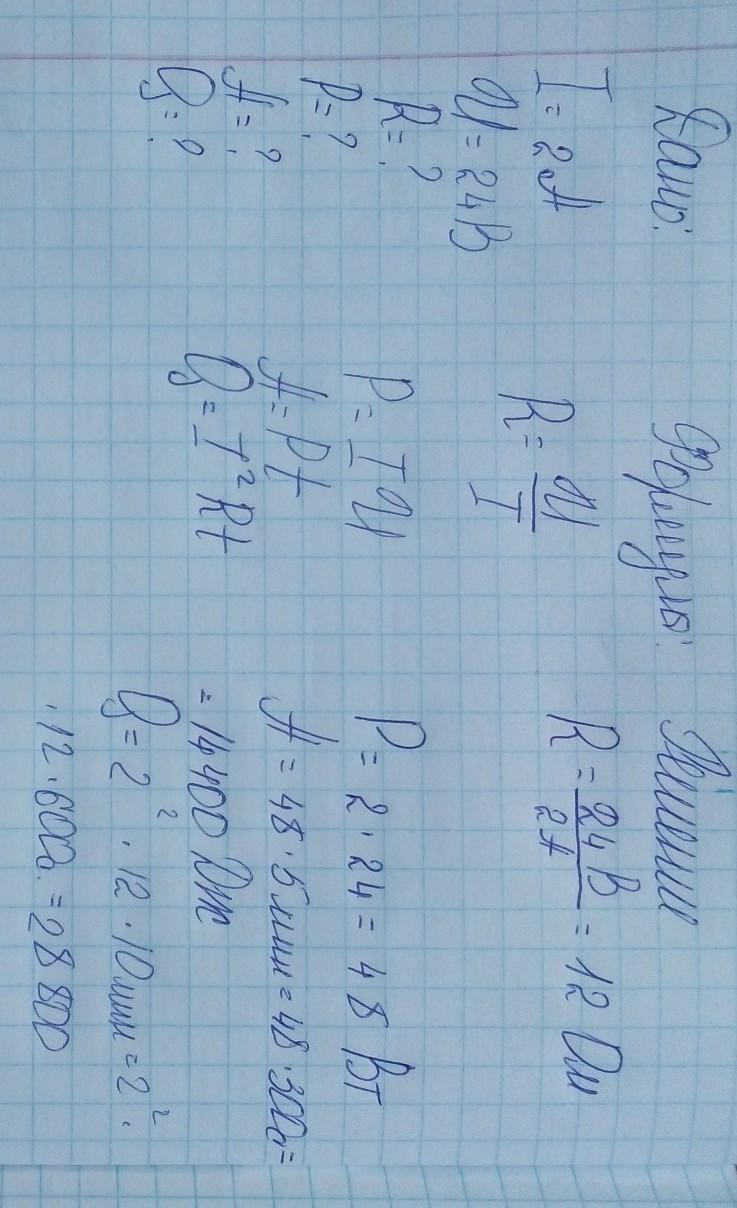 Дано:
I = 2А
U = 24В
R = ?
P = ?
A = ?
Q = ?
Формулы:
R = U/I
P = IU
A = Pt
Q = I²Rt
Решение
R = 24В/2А = 12 Ом
P = 2 · 24 = 48 Вт
A = 48 · 5мин = 48 · 300с =
= 14400 Дж
Q = 2² · 12 · 10мин = 2² ·
· 12 · 600с = 28 800